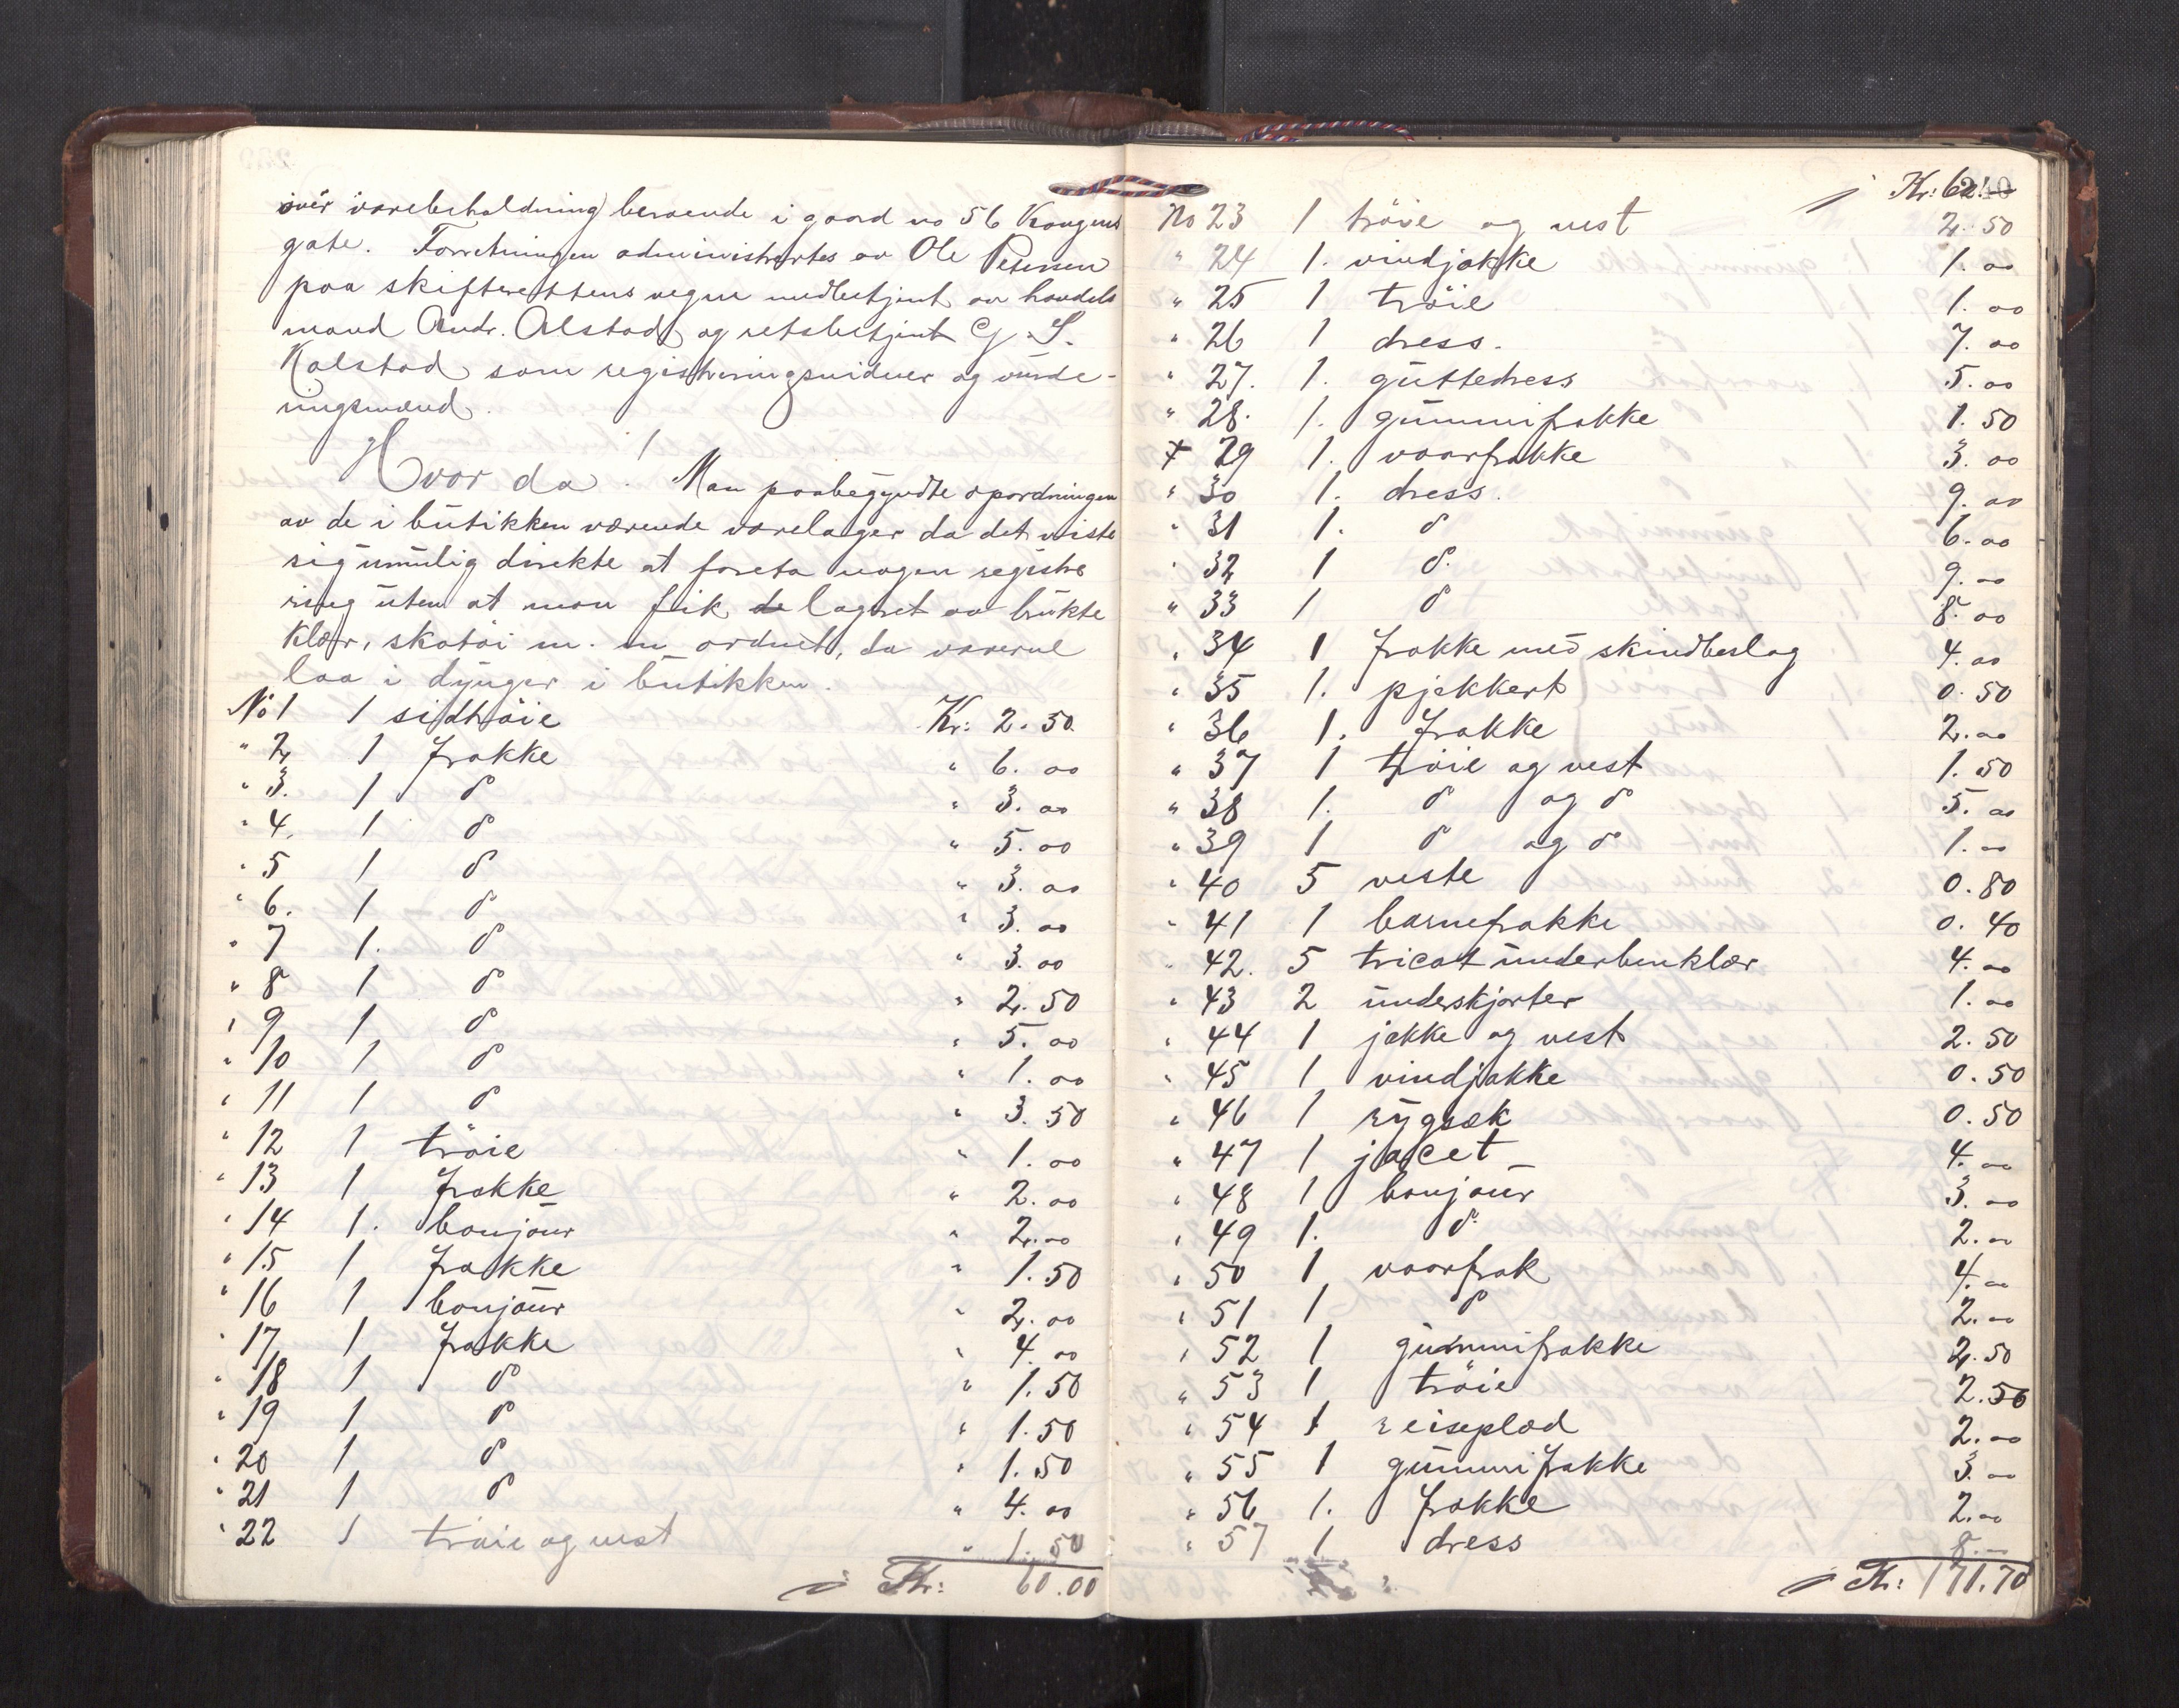 over varebeholdning) beroende i gaard no 56 Kongens
gate. Forretningen administrertes av Ole Petersen
paa skifterettens vegne medbetjent av handels
mand Andr. Alstad og retsbetjent G. S.
Kalstad som registreringsvidner og vurde-
ringsmænd.
Hvor da! Man paabegyndte opordningen
av de i butikken værende varelager da det viste
sig umulig direkte at foreta nogen registre
ring uten at man fik de lagret av brukte
klær, skotøi m. m ordnet, da varerne
laa i dynger i butikken.
No 1 1 sidtrøie Kr: 2.50
" 2 1 frakke " 6.00
" 3. 1 do " 3.00
" 4. 1 do " 5.00
" 5 1 do " 3.00
" 6. 1 do " 3.00
" 7 1. do " 3.00
" 8 1 do " 2.50
" 9 1 do " 5.00
" 10 1 do " 1.00
" 11 1 do " 3.50
" 12 1 trøie " 1.00
" 13 1 frakke " 2.00
" 14 1. bonjour " 2.00
" 15 1 frakke " 1.50
" 16 1 bonjour " 2.00
" 17 1 frakke " 4.00
" 18 1 do " 1.50
" 19 1 do " 1.50
" 20 1 do " 1.50
" 21 1 do " 4.00
" 22 1 trøie og vest " 1.50
Kr: 60.00
240
Kr: 60.–
No 23 1 trøie og vest 2.50
" 24 1. vindjakke 1.00
" 25 1 trøie 1.00
" 26 1 dress. 7.00
" 27. 1. guttedress 5.00
" 28. 1. gummifrakke 1.50
+ 29 1. vaarfrakke 3.00
" 30 1. dress. 9.00
" 31 1. do 6.00
" 32 1 do. 9.00
" 33 1 do 8.00
" 34 1 frakke med skindbeslag 4.00
" 35 1. pjekkert 0.50
" 36 1. frakke 2.00
" 37 1 trøie og vest 1.50
" 38 1. do og do 5.00
" 39 1 do og do 1.00
" 40 5 veste 0.80
" 41 1 barnefrakke 0.40
" 42. 5 tricot underbenklær 4.00
" 43 2 underskjorter 1.00
" 44 1 jakke og vest 2.50
" 45 1 vindjakke 0.50
" 46 1 rygsæk 0.50
" 47 1 jacet 4.00
" 48 1 bonjour 3.00
" 49 1. do. 2.00
" 50 1 vaarfrak 4.00
" 51 1 do 2.00
" 52 1 gummifrakke 2.50
" 53 1 trøie 2.50
" 54 1 reiseplæd 2.00
" 55 1 gummifrakke 3.00
" 56 1. frakke 2.00
" 57 1 dress 8.–
Kr: 171.70